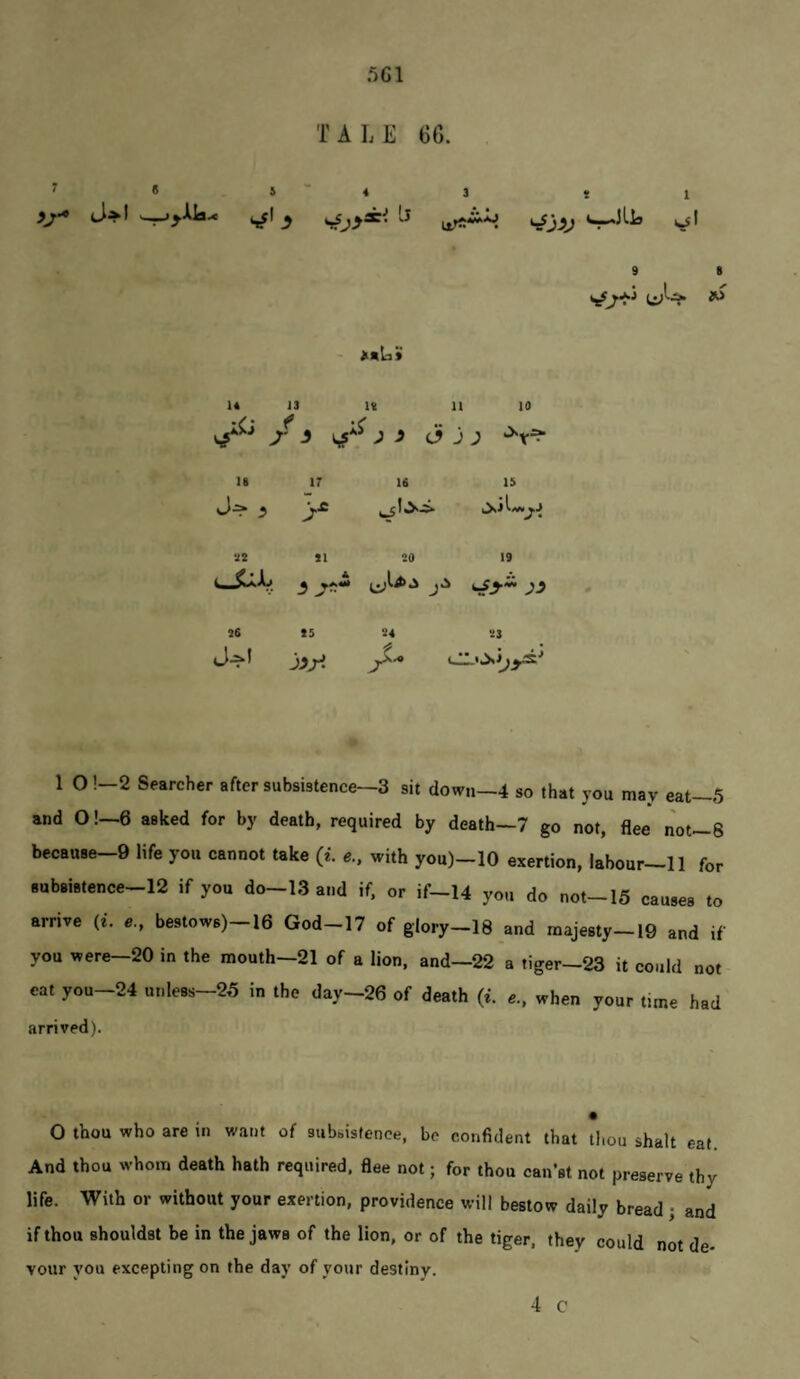 561
TALE 66.
7 6 5 4 3 2 1
ای طالب روزی بنشین تا بخوری و ای مطلوب اجل مرو
9 8
که جان نبری
قطعه
14 13 12 11 10
جهد رزق ار کنی وگر نکنی
18 17 16 15
برساند خدای عز و جل
22 21 20 19
ور شوی در دهان شیر و پلنگ
26 25 24 23
نخورندت مگر بروز اجل
1 O!—2 Searcher after subsistence—3 sit down—4 so that you may eat—5
and O!—6 asked for by death, required by death—7 go not, flee not—8
because—9 life you cannot take (i. e., with you)—10 exertion, labour—11 for
subsistence—12 if you do—13 and if, or if—14 you do not—15 causes to
arrive (i. e., bestows)—16 God—17 of glory—18 and majesty—19 and if
you were—20 in the mouth—21 of a lion, and—22 a tiger—23 it could not
eat you—24 unless—25 in the day—26 of death (i. e., when your time had
arrived).
O thou who are in want of subsistence, be confident that thou shalt eat.
And thou whom death hath required, flee not; for thou can'st not preserve thy
life. With or without your exertion, providence will bestow daily bread; and
if thou shouldst be in the jaws of the lion, or of the tiger, they could not de-
vour you excepting on the day of your destiny.
4 C